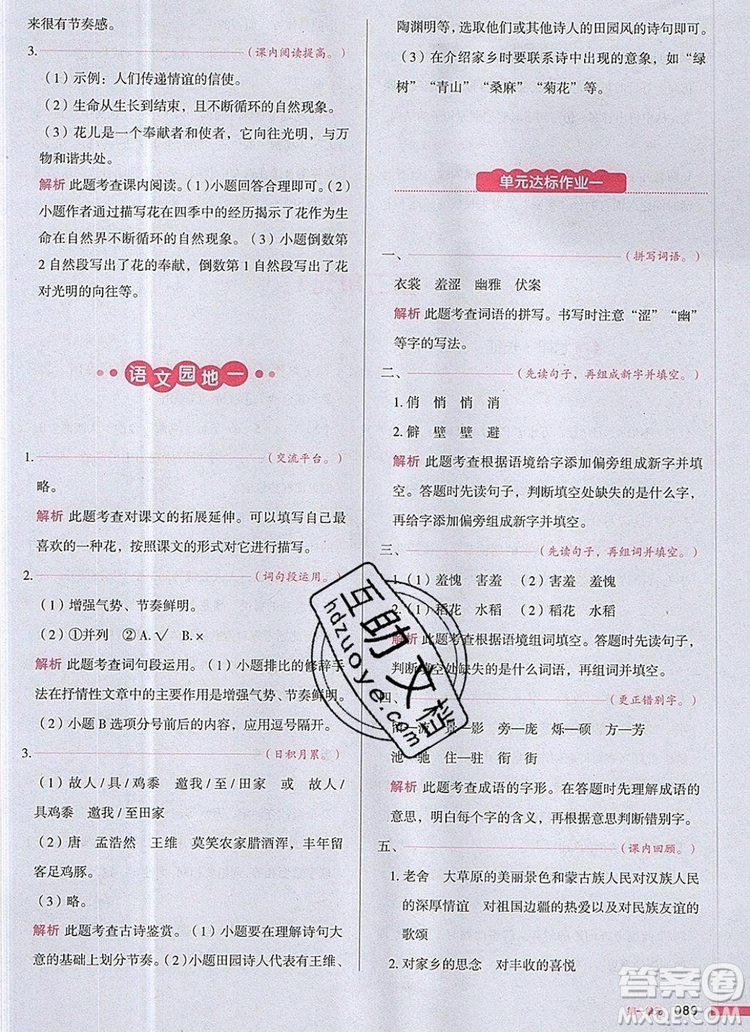 来很有节奏感。
3.(课内阅读提高。)
(1)示例:人们传递情谊的信使。
(2)生命从生长到结束,且不断循环的自然现象。
(3)花儿是一个奉献者和使者,它向往光明,与万
物和谐共处。
解析 此题考查课内阅读。(1)小题回答合理即可。(2)
小题作者通过描写花在四季中的经历揭示了花的生
命在自然界不断循环的自然现象。(3)小题倒数第
2自然段写出了花的奉献,倒数第1自然段写出了花
对光明的向往等。
语文园地一
1.(交流平台。)
略。
解析 此题考查对课文的拓展延伸。可以填写自己最
喜欢的一种花,按照课文的形式对它进行描写。
2.(词句段运用。)
(1)增强气势、节奏鲜明。
(2)①并列 ②A.√ B.×
解析 此题考查词句段运用。(1)小题排比的修辞手
法在抒情性文章中的主要作用是增强气势、节奏鲜明。
(2)小题B选项分号前后的内容,应用逗号隔开。
3.(日积月累。)
(1)故人/具/鸡黍 邀我/至/田家 或 故人/
具鸡黍 邀我/至田家
(2)唐 孟浩然 王维 莫笑农家腊酒浑,丰年留
客足鸡豚。
(3)略。
解析 此题考查古诗鉴赏。(1)小题要在理解诗句大
意的基础上划分节奏。(2)小题田园诗人代表有王维、
陶渊明等,也可以填写其他诗人的田园风的诗句即可。
(3)在介绍家乡时要联系诗中出现的意象,如“绿
树”“青山”“桑麻”“菊花”等。
单元达标作业一
一、(拼写词语。)
衣裳 羞涩 幽雅 伏案
解析 此题考查词语的拼写。书写时注意“涩”“幽”
等字的写法。
二、(先读句子,再组成新字并填空。)
1.俏 悄 悄 消
2.僻 壁 壁 避
解析 此题考查根据语境给字添加偏旁组成新字并填
空。答题时先读句子,判断填空处缺失的是什么字,
再给字添加偏旁组成新字并填空。
三、(先读句子,再组成新字并填空。)
1.(1)羞愧 害羞 (2)羞愧 害羞
2.(1)稻花 水稻 (2)稻花 水稻
解析 此题考查根据语境组词填空。答题时先读句子,
判断填空处缺失的是什么词语,再组词填空。
四、(更正错别字。)
流 景—影 旁—庞 烁—硕 方—芳
池—驰 住—驻 衔 街
解析 此题考查成语的字形。在答题时先理解成语的
意思,明白每个字的含义,从而判断出错别字。
五、(课内回顾。)
1.老舍 大草原的美丽景色和蒙古族人民对汉族人民
的深厚情谊 对祖国边疆的热爱和对民族友谊的
歌颂
2.对家乡的思念 对丰收的喜悦
互助文档
hdzuoye.com
答案圈
MXQE.COM
089